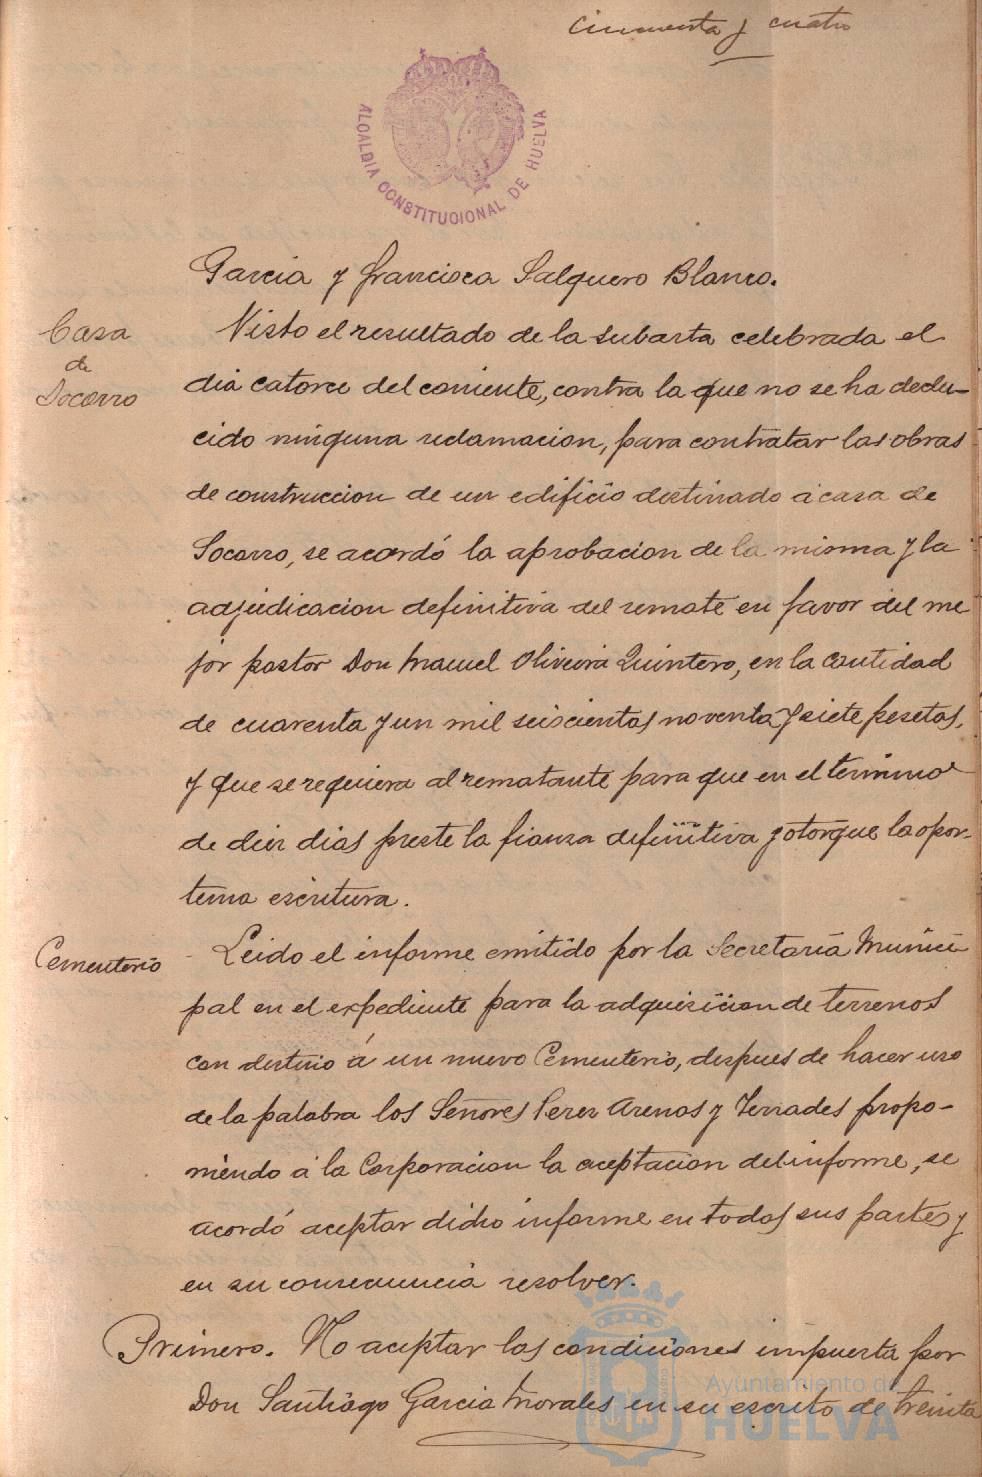 cincuenta y cuatro
ALCALDIA CONSTITUCIONAL DE HUELVA
Garcia y Francisca Salguero Blanco.
Casa
de
Socorro
Visto el resultado de la subasta celebrada el
dia catorce del corriente, contra la que no se ha dedu-
cido ninguna reclamacion, para contratar las obras
de construccion de un edificio destinado á casa de
Socorro, se acordó la aprobacion de la misma y la
adjudicacion definitiva del remate en favor del me
jor postor Don Manuel Oliveira Quintero, en la cantidad
de cuarenta y un mil seiscientas noventa y siete pesetas,
y que se requiera al rematante para que en el termino
de diez dias preste la fianza definitiva y otorgue la opor-
tuna escritura.
Cementerio
Leido el informe emitido por la Secretaria Munici
pal en el expediente para la adquisicion de terrenos
con destino á un nuevo Cementerio, despues de hacer uso
de la palabra los Señores Perez Arenas y Terrades propo-
niendo á la Corporacion la aceptacion del informe, se
acordó aceptar dicho informe en todas sus partes y
en su consecuencia resolver.
Primero. No aceptar las condiciones impuesta por
Don Santiago Garcia Morales en su escrito de treinta
Ayuntamiento de
HUELVA